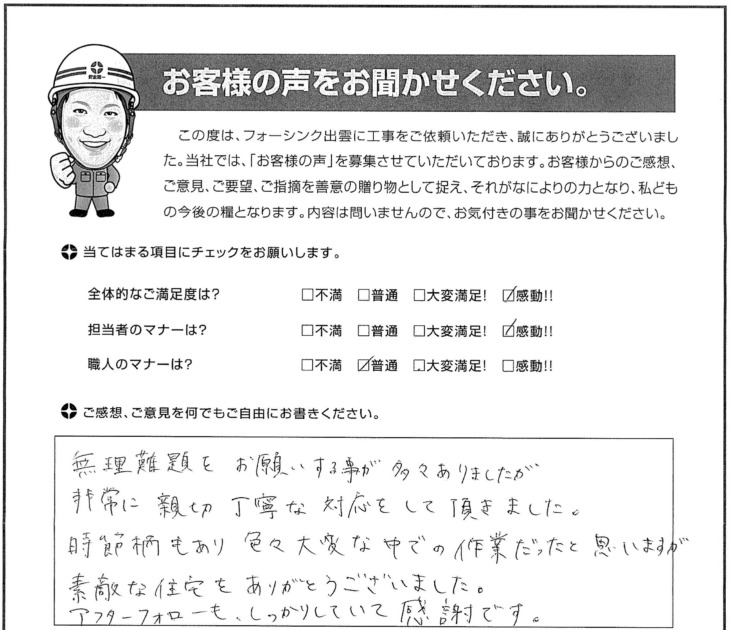 お客様の声をお聞かせください。
この度は、フォーシンク出雲に工事をご依頼いただき、誠にありがとうございまし
た。当社では、「お客様の声」を募集させていただいております。お客様からのご感想、
ご意見、ご要望、ご指摘を善意の贈り物として捉え、それがなによりの力となり、私ども
の今後の糧となります。内容は問いませんので、お気付きの事をお聞かせください。
当てはまる項目にチェックをお願いします。
全体的なご満足度は? □不満 □普通 □大変満足! ☑感動!!
担当者のマナーは? □不満 □普通 □大変満足! ☑感動!!
職人のマナーは? □不満 ☑普通 □大変満足! □感動!!
ご感想、ご意見を何でもご自由にお書きください。
無理難題を お願いする事が 多々ありましたが
非常に 親切 丁寧な 対応をして頂きました。
時節柄もあり 色々大変な中での作業だったと思いますが
素敵な住宅をありがとうございました。
アフターフォローも、しっかりしていて感謝です。